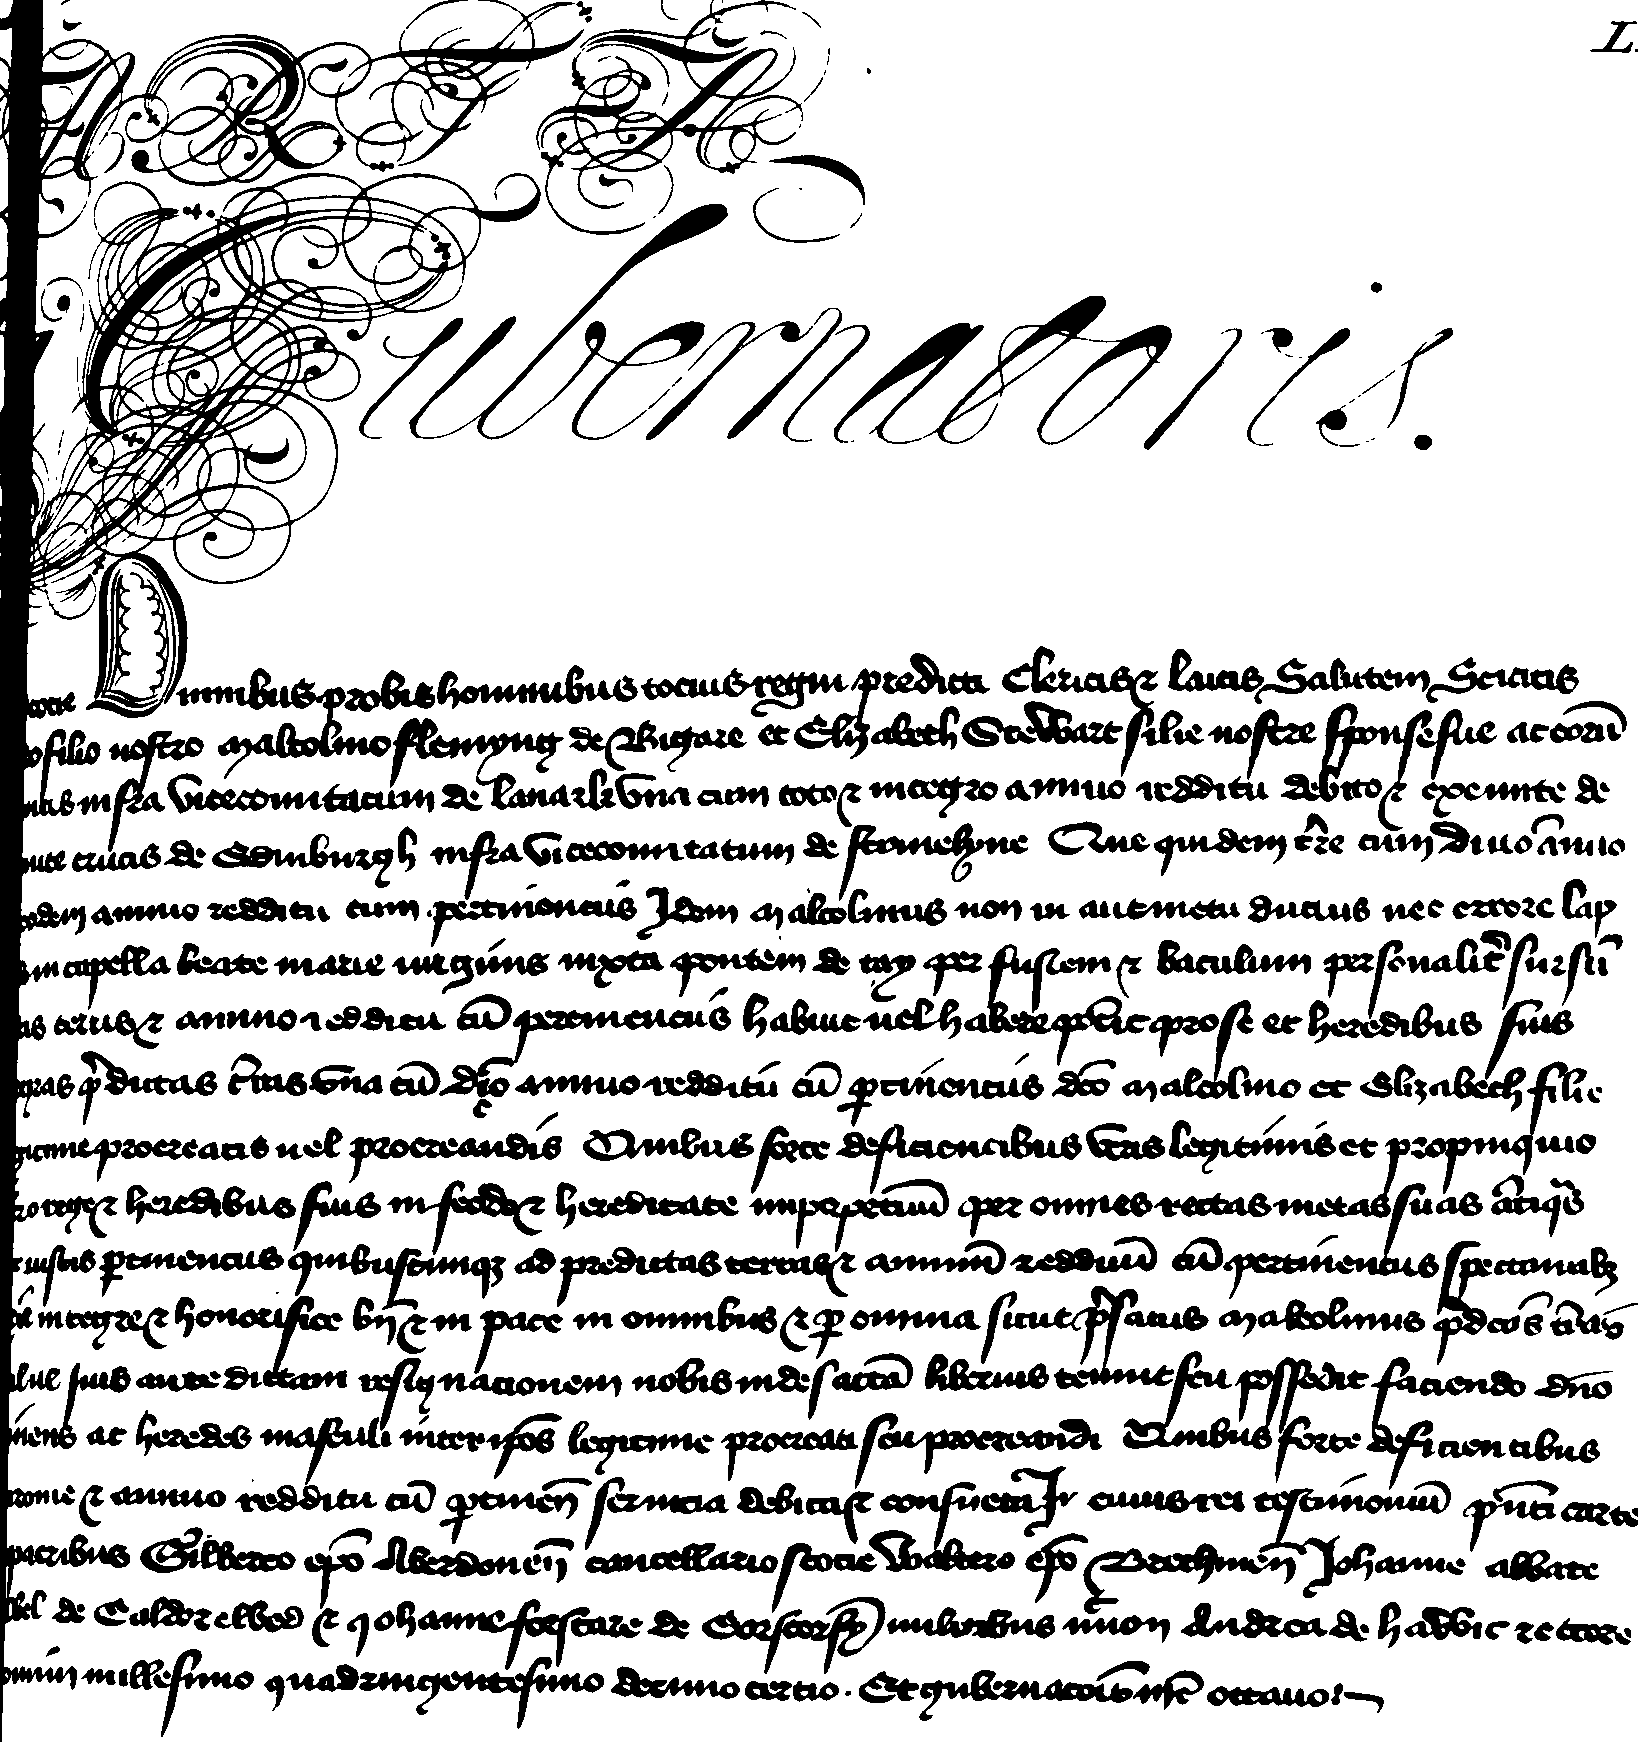 L.
ARTA
Gubernatoris.
scocie Omnibus probis hominibus tocius regni predicti Clericis ⁊ laicis Salutem Sciatis
filio nostro Malcolmo flemyng de Bigare et Elizabeth Stewart filie nostre sponse sue ac eorū
infra vicecomitatum de lanark vna cum toto ⁊ integro annuo redditu debito ⁊ exeunte de
crucis de Edinburgh infra vicecomitatum de Que quidem t̄re cum annuo
eodem annuo redditu cum pertinenciis Idem Malcolmus non vi aut metu ductus nec errore lap
in capella beate marie virginis iuxta pontem de tay per fustem ⁊ baculum personalit̄ sursū
terris ⁊ annuo redditu cū pertinenciis habuit vel habere pot̄it pro se et heredibus suis
p̄dictas t̄ras vna cū dc̄o annuo redditu cū ꝑtinenciis dc̄o Malcolmo et Elizabeth filie
procreatis vel procreandis Quibus forte deficientibus legitimis et propinquio
⁊ heredibus suis in feodo ⁊ hereditate imperpetuū per omnes rectas metas suas
iustis ꝑtinenciis quibuscunqꝫ ad predictas terras ⁊ annuū redditū cū pertinenciis spectantibꝫ
integre ⁊ honorifice bn̄ ⁊ in pace in omnibus ⁊ ꝑ omnia sicut p̄fatus Malcolmus
suis ante dictam resignacionem nobis inde factā liberius tenuit seu possedit faciendo dn̄o
ac heredes masculi inter ip̄os legitime procreati seu procreandi Quibus forte deficientibus
⁊ annuo redditu cū ꝑtinen̄ seruicia debita ⁊ consueta In cuius rei testimoniū p̄nti carte
patribus Gilberto ep̄o Aberdonen̄ cancellario scocie Waltero ep̄o Brechinen̄ Johanne abbate
de ⁊ Johanne forstare de Corstorfyn militibus Andrea de hawic rectore
millesimo quadringentesimo decimo tercio. Et gubernacōis nr̄e octauo